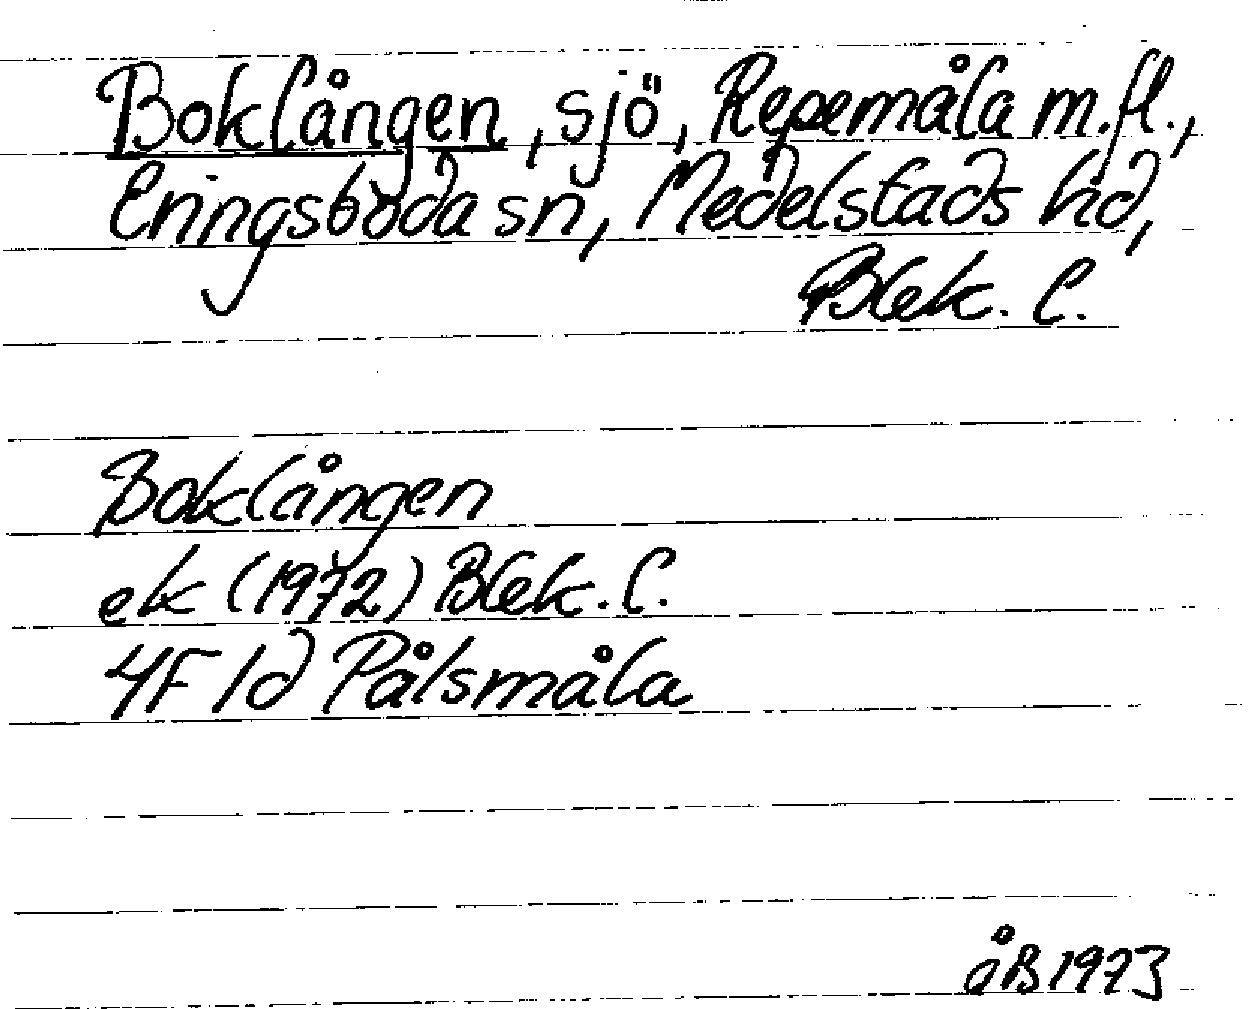 Boklången, sjö, Repemåla m.fl.,
Eringsboda sn, Medelstads hd,
Blek. l.
Boklången
ek (1972) Blek. l.
4F 1d Pålsmåla
åB 1973